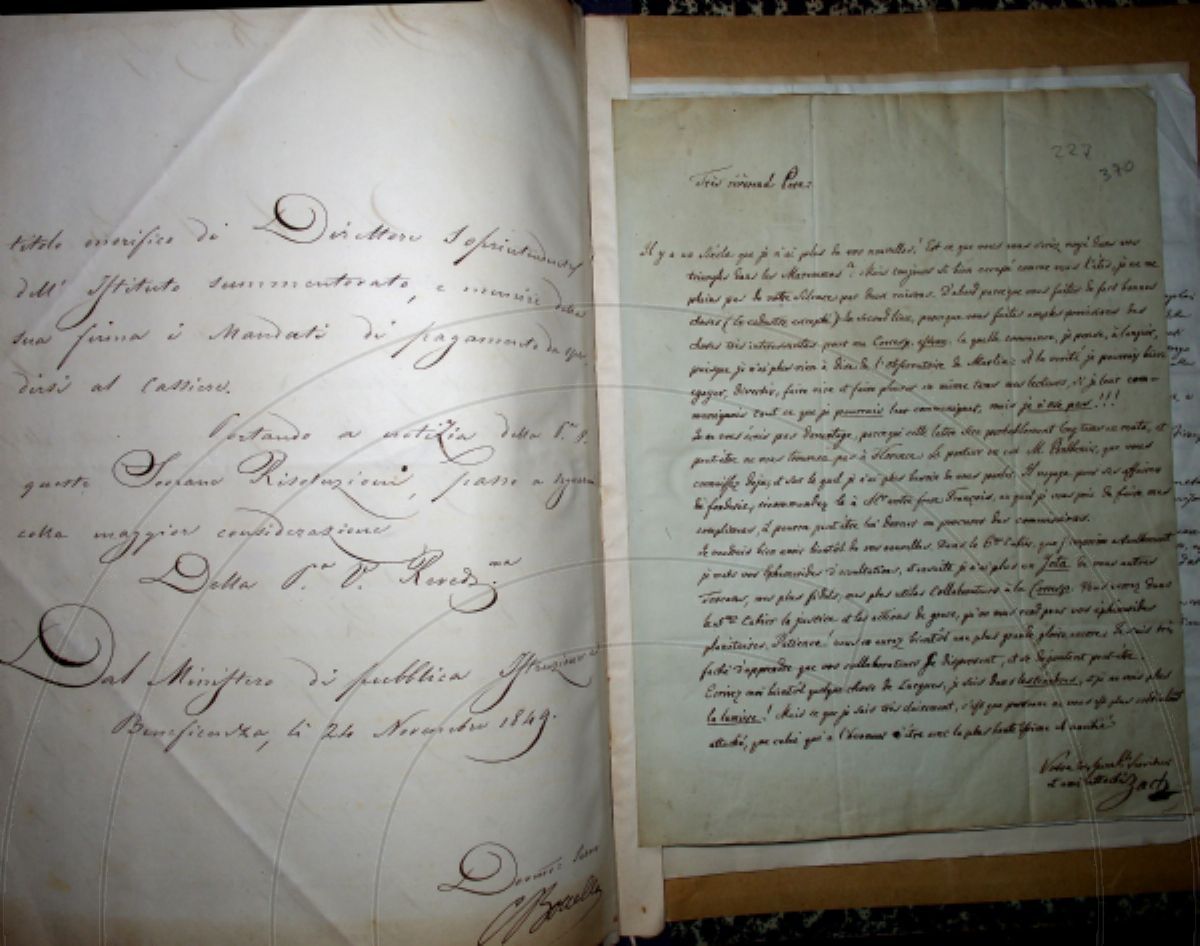 titolo onorifico di Direttore Soprintendente
dell' Istituto summentovato, e munire della
sua firma i Mandati di pagamento da spe-
dirsi al Cassiere.
Portando a notizia della P.ª V.
queste Sovrane Risoluzioni, passo a
colla maggior considerazione
Della P.ª V.ª Revd.ma
Dal Ministero di pubblica Istruzione e
Beneficenza, li 24 Novembre 1849.
Devmo: Serv
Boccella
227
370
Très révérend Père:
Il y a un Siècle que je n'ai plus de vos nouvelles! Est ce que vous vous seriez noyé dans vos
triangles dans les Maremmes? Mais toujours si bien occupé comme vous l'êtes, je ne me
plains pas de votre silence par deux raisons. D'abord parceque vous faites de fort bonnes
choses (le cadastre excepté) en second lieu, parceque vous faites amples provisions des
choses très interessantes pour ma Corresp. astron. la quelle commence, je pense, à languir,
puisque je n'ai plus rien à dire de l'observatoire de Marlia. A la verité je pourrais bien
egayer, divertir, faire rire et faire pleurer en même tems mes lecteurs, si je leur com-
muniquois tout ce que je pourrais leur communiquer, mais je n'ose pas!!!
Je ne vous écris pas davantage, parceque cette lettre sera probablement long tems en route, et
peut-être ne vous trouvera pas à Florence. Le porteur en est M. que vous
connaissez deja, et sur le quel je n'ai plus besoin de vous parler. Il voyage pour ses affaires
de recommandez le à Mr. votre frere François, au quel je vous prie de faire mes
complimens, il pourra peut-être lui donner ou procurer des commissions.
Je voudrais bien avoir bientôt de vos nouvelles. Dans le 6me Cahier, que j'imprime actuellement
je mets vos Ephemerides d'occultation, et ensuite je n'ai plus un Jota de vous autres
Toscans, mes plus fidels, mes plus utiles Collaborateurs à la Corresp. Vous verrez dans
le 5me Cahier la justice et les actions de grace, que l'on rend pour vos éphémerides
planetaires. Patience! vous en aurez bientôt une plus grande gloire encore. Je suis très
faché d'apprendre que vos collaborateurs se dispersent, et se degoutent peut-être.
Ecrivez moi bientôt quelque chose de Lucques, je suis dans les tenebres, et je ne vois plus
la lumière! Mais ce que je sais très clairement, c'est que personne ne vous est plus
attaché, que celui qui a l'honneur d'être avec la plus haute estime et amitié
Votre très humble Serviteur
et ami attaché Zach